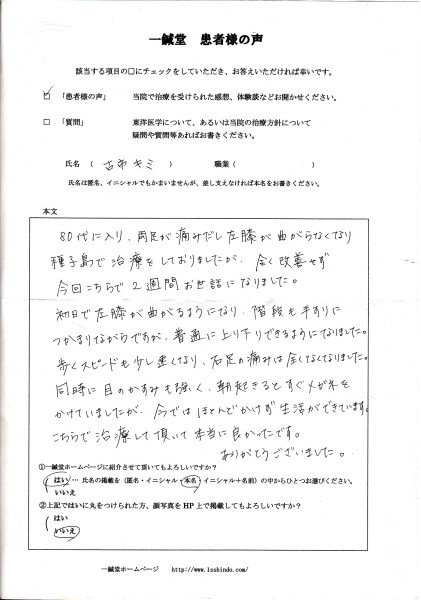 一鍼堂 患者様の声
該当する項目の□にチェックをしていただき、お答えいただければ幸いです。
☑ 「患者様の声」 当院で治療を受けられた感想、体験談などお聞かせください。
□ 「質問」 東洋医学について、あるいは当院の治療方針について
疑問や質問等あればお書きください。
氏名 ( 古市 キミ ) 職業 ( )
氏名は匿名、イニシャルでもかまいませんが、差し支えなければ本名をお書きください。
本文
80代に入り、両足が痛みだし左膝が曲がらなくなり
種子島で治療をしておりましたが、全く改善せず
今回こちらで2週間お世話になりました。
初日で左膝が曲がるようになり、階段も手すりに
つかまりながらですが、普通に上り下りできるようになりました。
歩くスピードも少し速くなり、右足の痛みは全くなくなりました。
同時に目のかすみも強く、朝起きるとすぐメガネを
かけていましたが、今ではほとんどかけず生活ができています。
こちらで治療して頂いて本当に良かったです。
ありがとうございました。
①一鍼堂ホームページに紹介させて頂いてもよろしいですか？
(はい… 氏名の掲載を (匿名・イニシャル・本名・イニシャル+名前) の中からひとつお選びください。
いいえ
②上記ではいに丸をつけられた方、顔写真を HP 上で掲載してもよろしいですか？
(はい
いいえ
一鍼堂ホームページ http://www.isshindo.com/